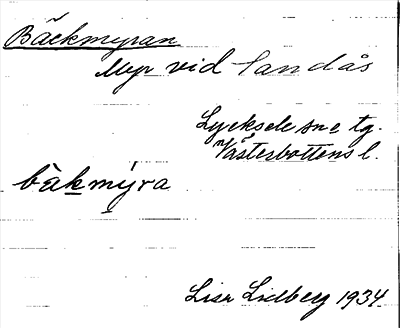 Bäckmyran
Myr vid Sandås
Lycksele sne tg.
Västerbottens l.
bàkmýra
Lisa Lidberg 1934